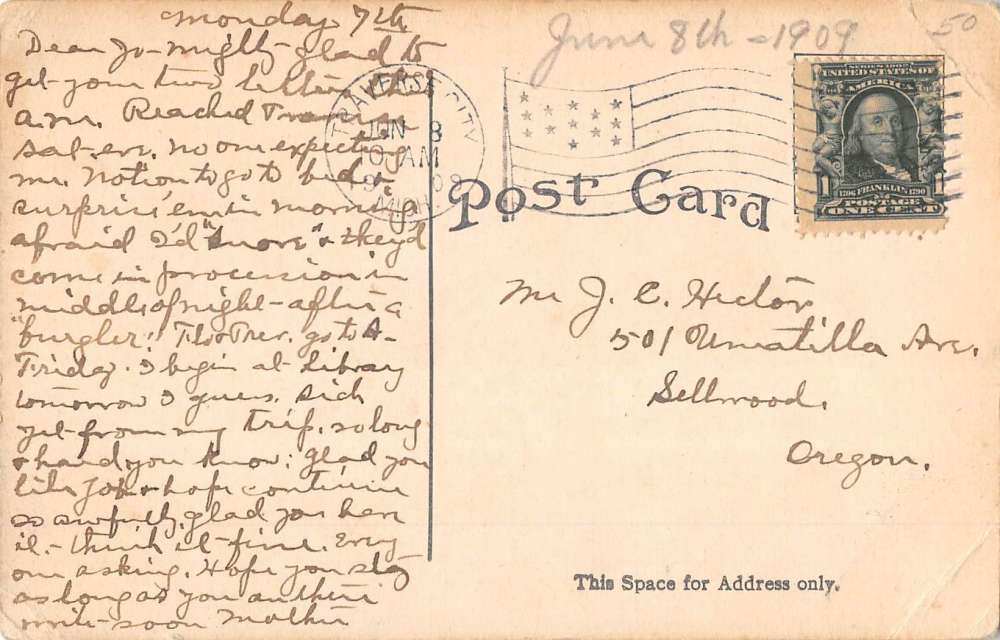 Monday 7th
Dear Jo - mighty glad to
get your two letters this
a.m. Reached Traverse
Sat. eve. no one expecting
me. Notion to go to bed &
surprise 'em in morning
afraid I'd "snore" & they'd
come in procession in
middle of night - after a
"burglar". Flo & Trev. go to A-
Friday. I begin at library
tomorrow I guess. Sick
yet from my trip. so long
& hard you know; glad you
like job & hope continue
so awfully glad you have
it. - think it fine. Every
one asking. Hope you stay
as long as you are there
write soon Mother
June 8th - 1909
50
TRAVERSE CITY
JUN 8
10 AM
MICH.
SERIES 1902
UNITED STATES OF
AMERICA
1706 FRANKLIN 1790
POSTAGE
1 ONE CENT
Post Card
Mr J. C. Hector
501 Umatilla Ave.
Sellwood.
Oregon.
This Space for Address only.